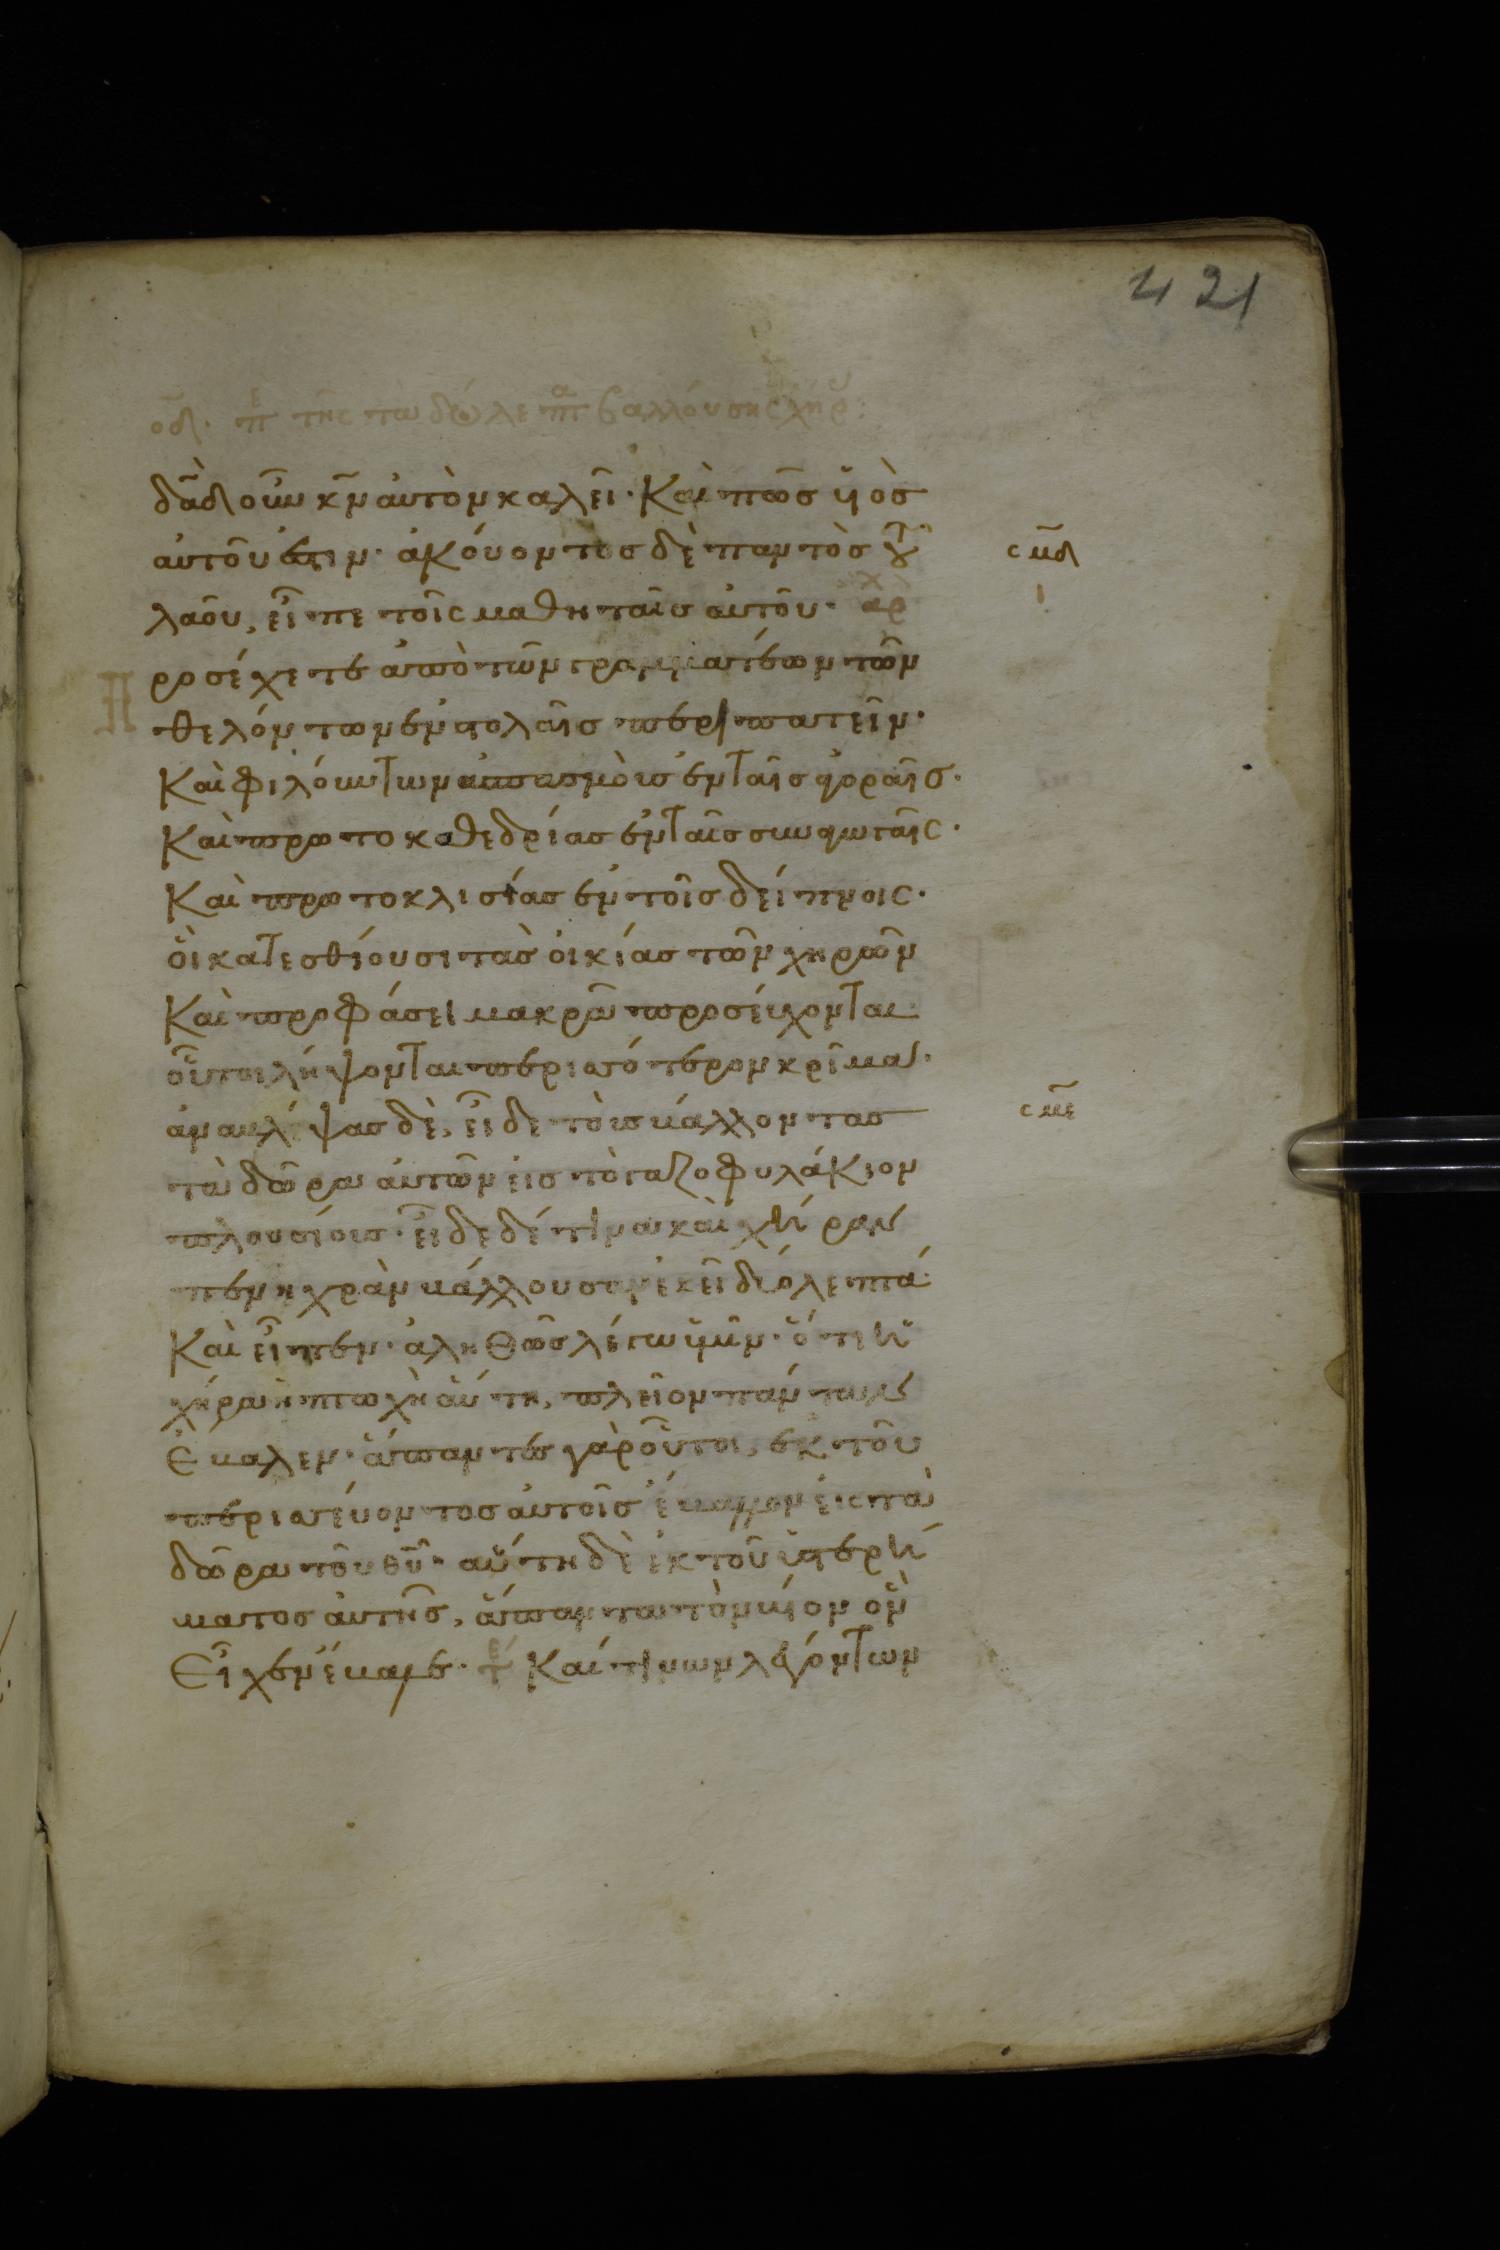 421
οδ. πε τῆς τὰ δύω λεπτ βαλλούσης χήρ:
δᾱδ οὖν κ̄ν αὐτὸν καλεῖ· Καὶ πῶς ὑιὸσ
αὐτοῦ ἐστιν· ἀκούοντος δὲ παντὸσ τοῦ
λαοῦ, εἶπε τοῖς μαθηταῖσ αὐτοῦ· ἀρχ
Προσέχετε ἀπὸ τῶν γραμματέων τῶν
θελόντων ἐν στολαῖσ περιπατεῖν·
Καὶ φιλούντων ἀσπασμοὺσ ἐν ταῖσ ἀγοραῖσ·
Καὶ πρωτοκαθεδρίασ ἐν ταῖσ συναγωγαῖς·
Καὶ πρωτοκλισίασ ἐν τοῖσ δείπνοις·
ὁὶ κατεσθίουσι τὰσ οἰκίασ τῶν χηρῶν
Καὶ προφάσει μακρᾶ προσεύχονται·
οὗτοι λήψονται περισσότερον κρῖμα·
ἀναβλέψασ δὲ, εἶδε τοὺσ βάλλοντασ
τὰ δῶρα αὐτῶν εἰσ τὸ γαζοφυλάκιον
πλουσίουσ· εἶδε δέ τινα καὶ χήραν
πενηχρὰν βάλλουσαν ἐκεῖ δύο λεπτά·
Καὶ εἶπεν· ἀληθῶσ λέγω ὑμῖν· ὅτι ἡ
χήρα ἡ πτωχὴ αὕτη, πλεῖον πάντων
ἔβαλεν· ἅπαντεσ γὰρ οὗτοι, ἐκ τοῦ
περισσεύοντοσ αὐτοῖσ ἔβαλλον εἰς τὰ
δῶρα τοῦ θ̄ῡ· αὕτη δὲ ἐκ τοῦ ὑστερή
ματοσ αὐτῆσ, ἅπαντα τὸν βίον ὃν
εἶχεν ἔβαλε· τε Καί τινων λεγόντων
ςμδ
ςμε